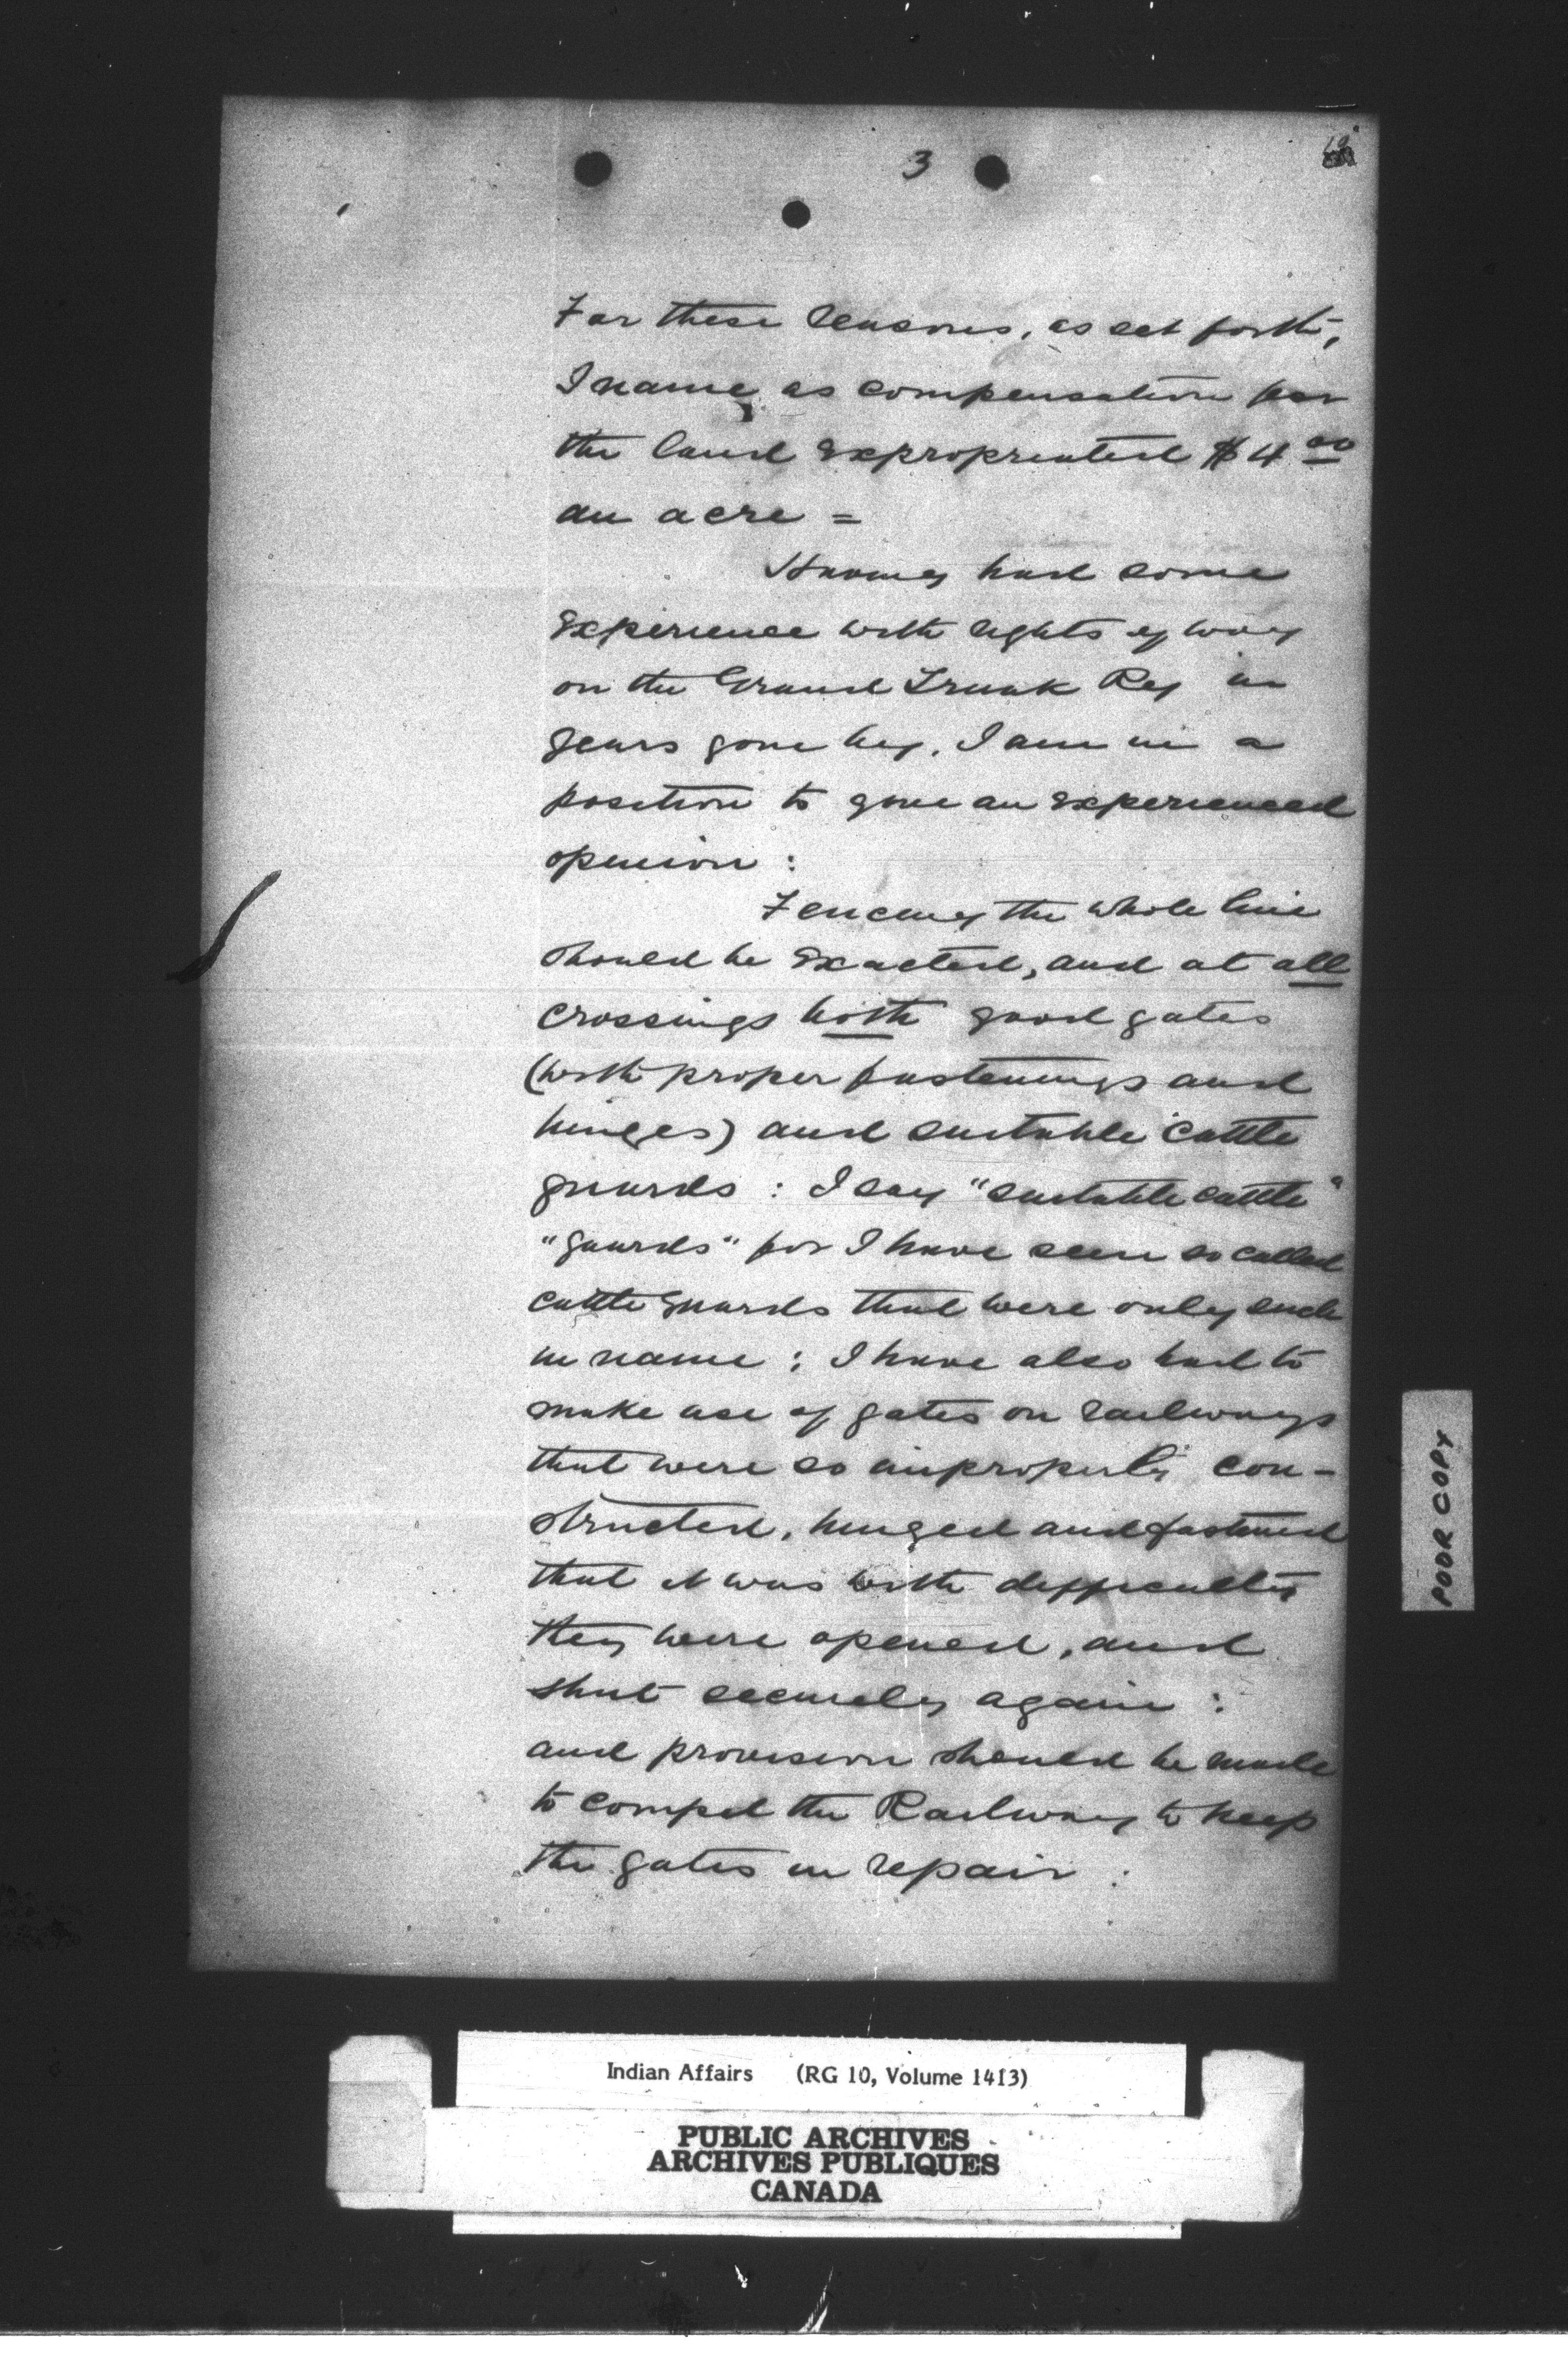 3
For these reasons, as set forth,
I name as compensation for
the land expropriated $4 00
an acre =
Having had some
experience with rights of way
on the Grand Trunk Ry in
years gone by, I am in a
position to give an experienced
opinion :
Fencing the whole line
should be exacted, and at all
crossings both good gates
(with proper fastenings and
hinges) and suitable cattle
guards : I say "suitable cattle"
"guards" for I have seen so called
cattle guards that were only such
in name ; I have also had to
make use of gates on railways
that were so improperly con-
structed, hinged and fastened
that it was with difficulty
they were opened, and
shut securely again :
and provision should be made
to compel the Railway to keep
the gates in repair :
POOR COPY
Indian Affairs (RG 10, Volume 1413)
PUBLIC ARCHIVES
ARCHIVES PUBLIQUES
CANADA